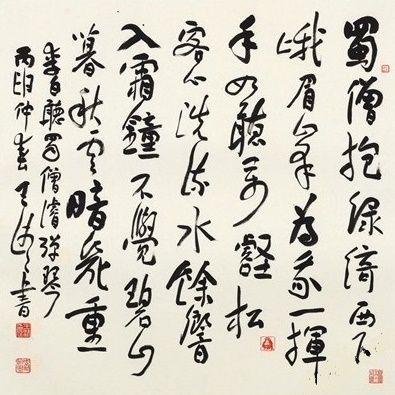 蜀僧抱綠綺西下
峨眉峯為我一揮
手如聽萬壑松
客心洗流水餘響
入霜鐘不覺碧山
暮秋雲暗幾重
李白聽蜀僧濬彈琴
丙申仲春書